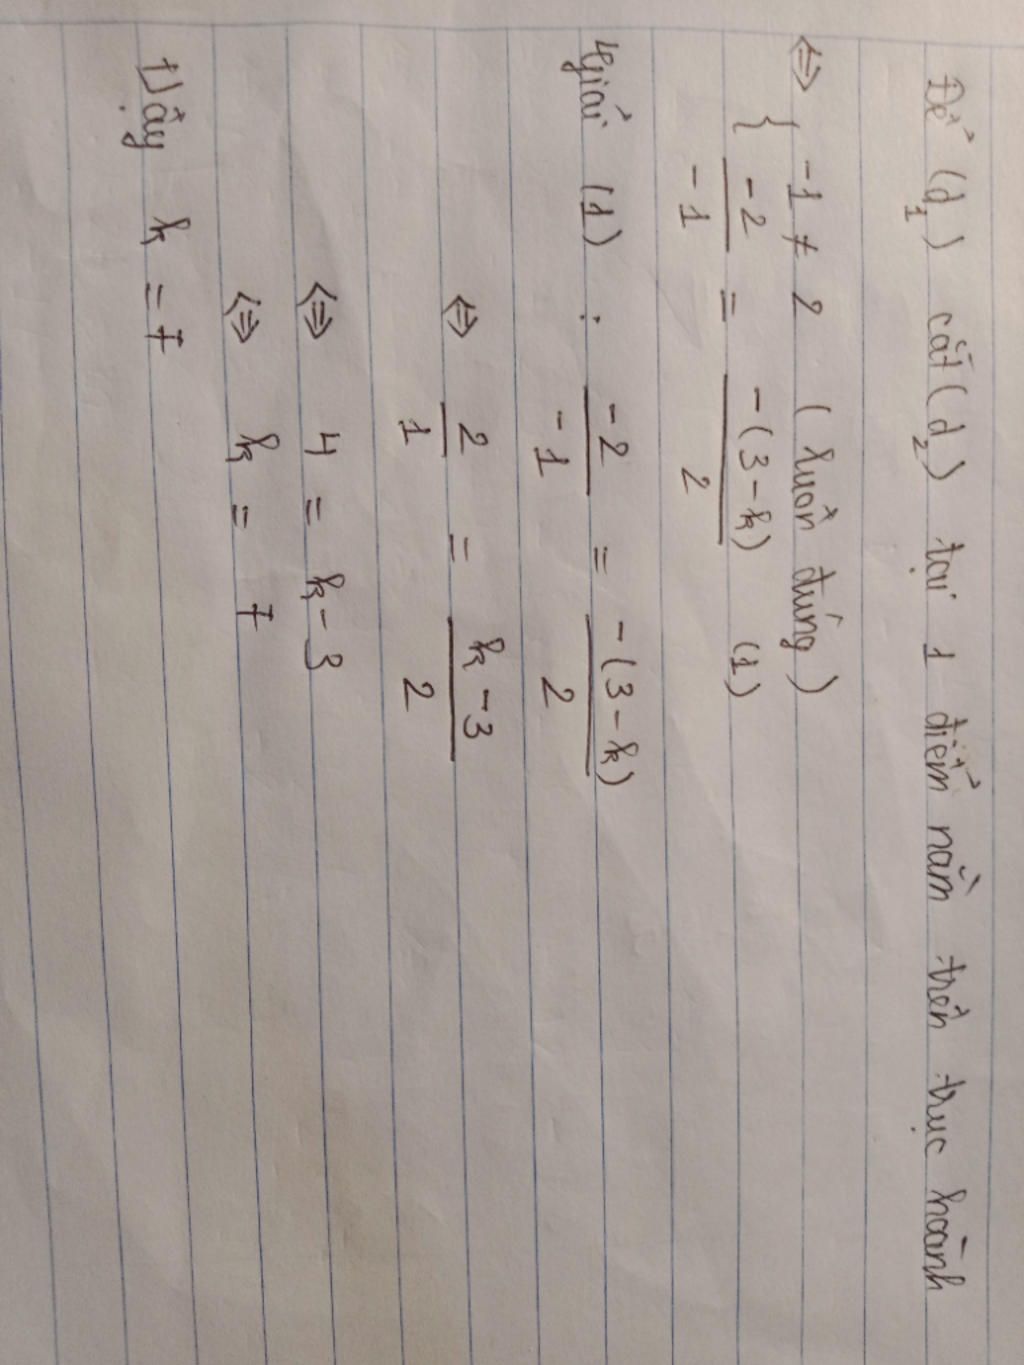 Để (d₁) cắt (d₂) tại 1 điểm nằm trên trục hoành
⇔ { -1 ≠ 2 (luôn đúng)
-2/-1 = -(3-k)/2 (1)
giải (1) : -2/-1 = -(3-k)/2
⇔ 2/1 = k-3/2
⇔ 4 = k-3
⇔ k = 7
Vậy k = 7